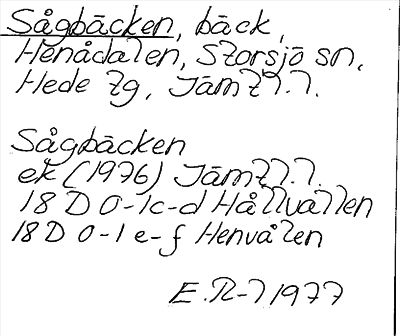 Sågbäcken, bäck,
Henådalen, Storsjö sn,
Hede tg, Jämtl.l.
Sågbäcken
ek (1976) Jämtl.l.
18 D 0-1c-d Hållvallen
18 D 0-1 e-f Henvålen
E.R-l 1977